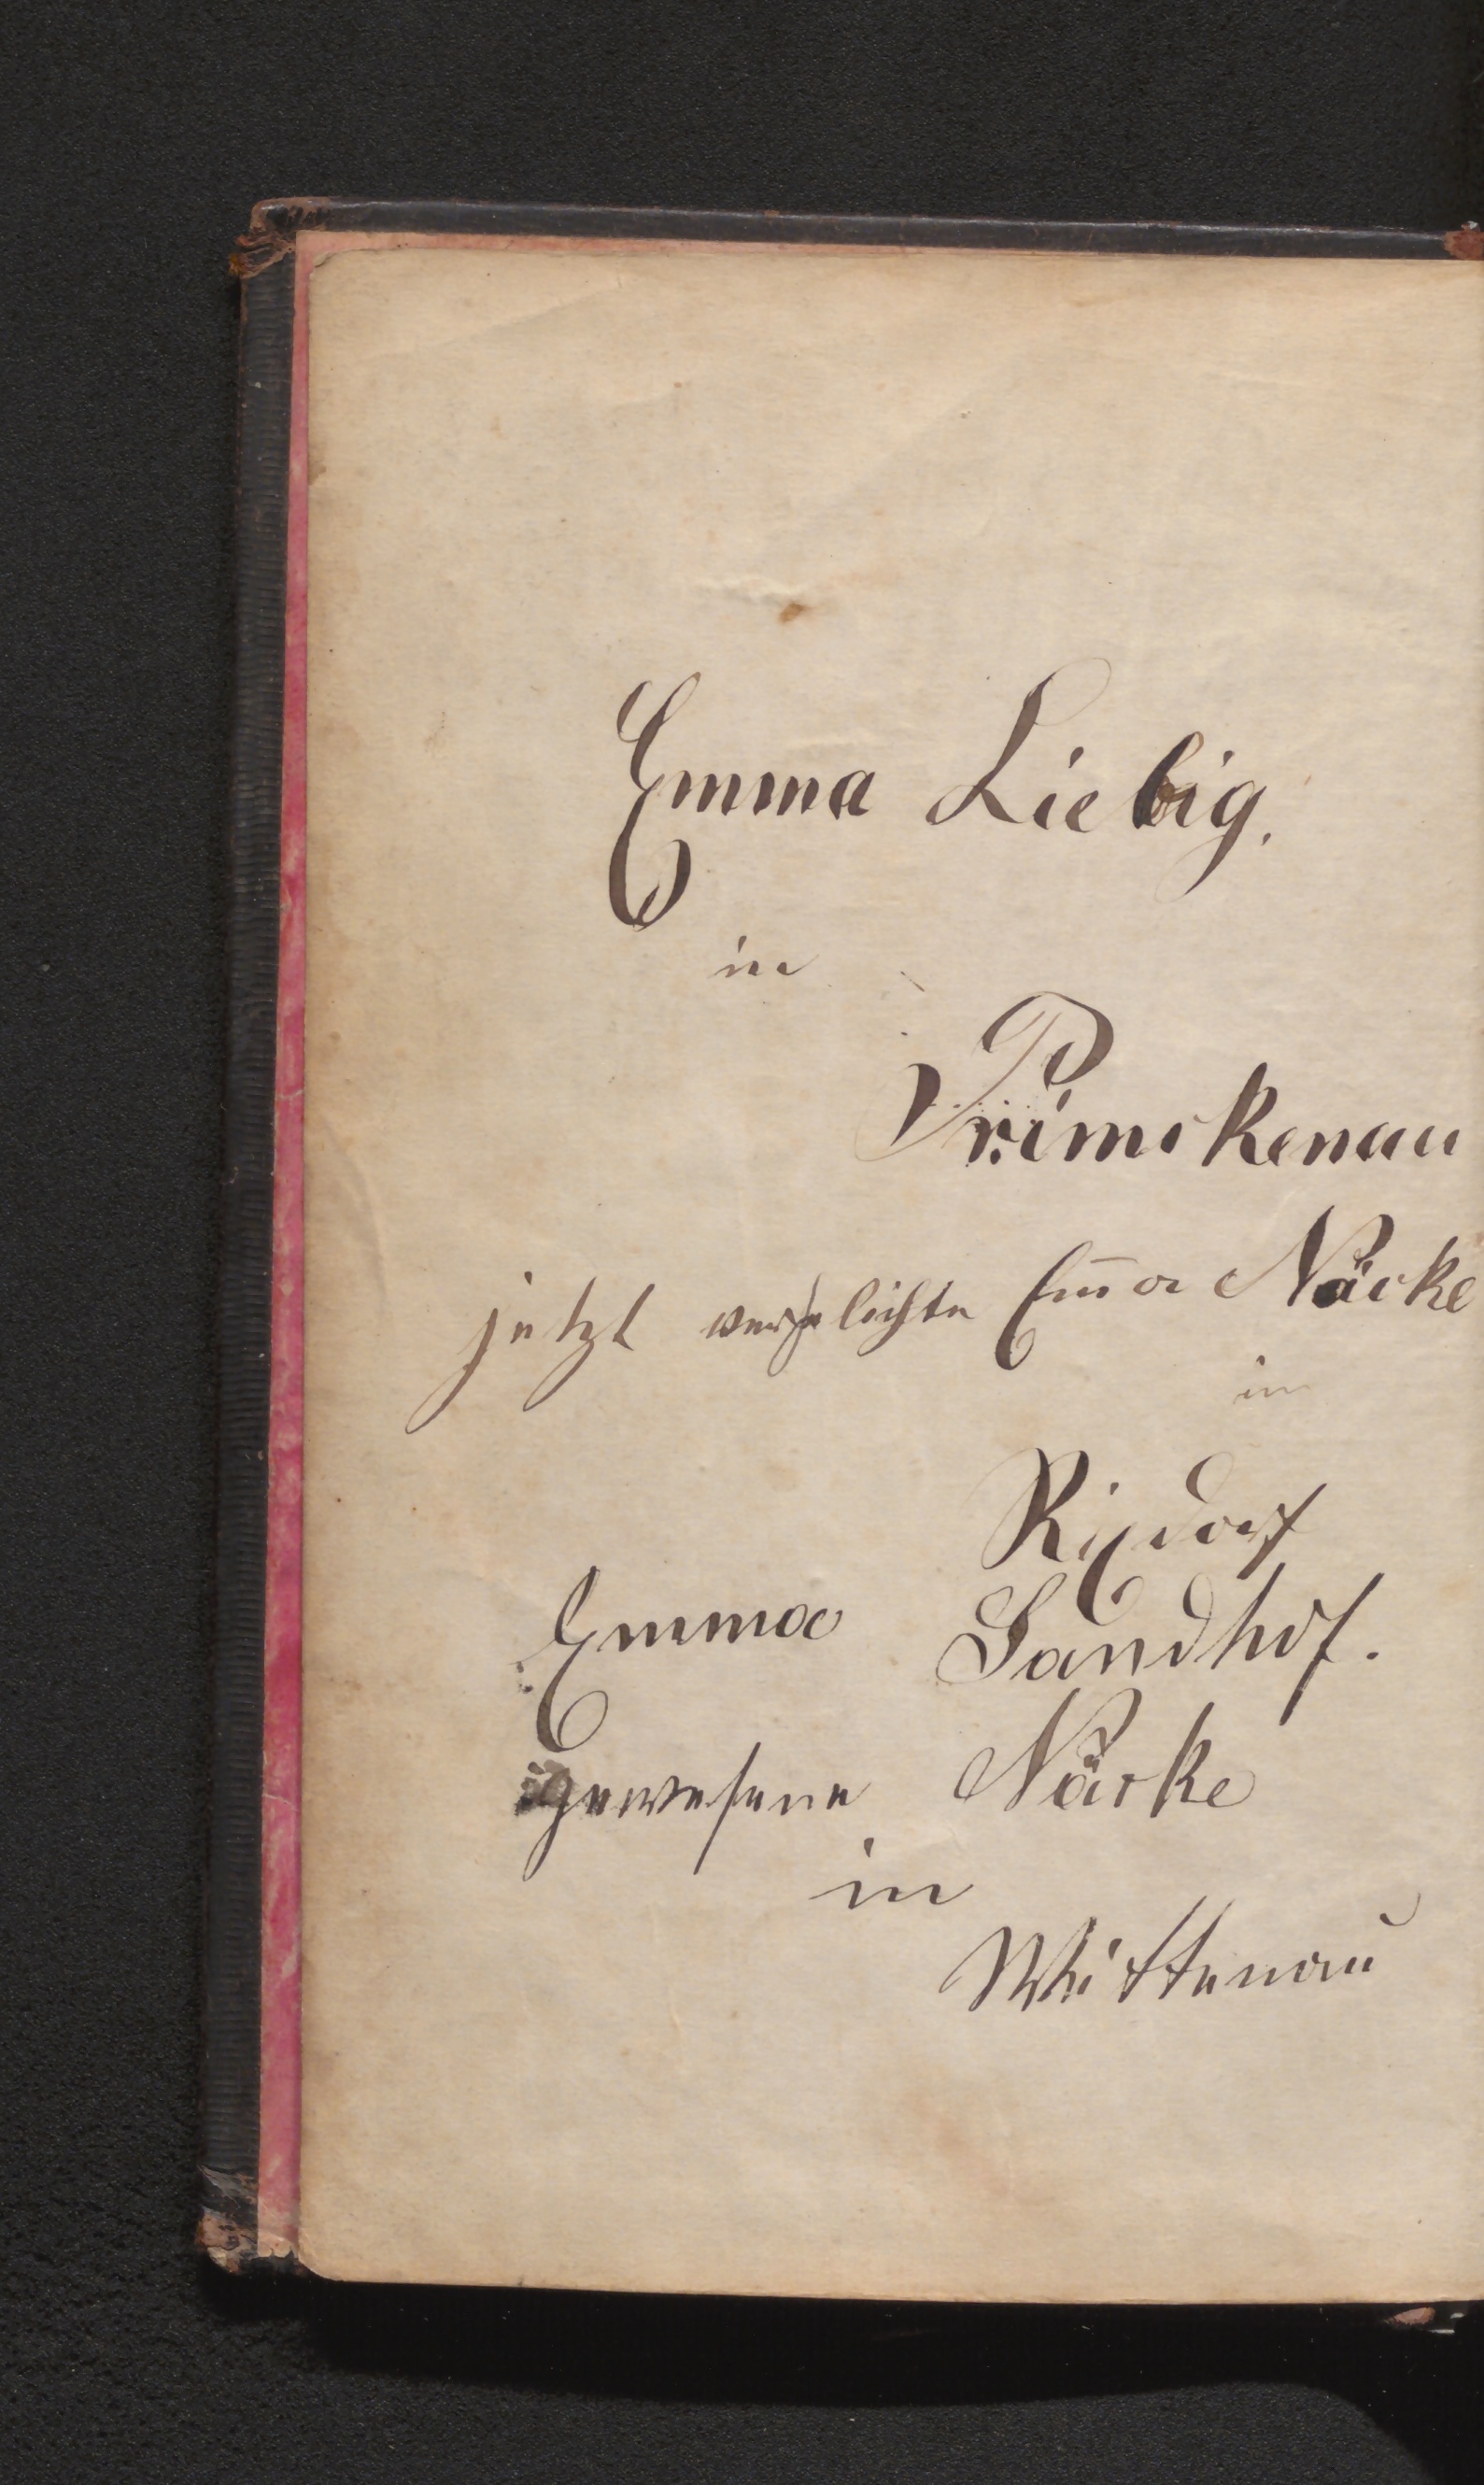 Emma Liebig.
in
Primkenau
jetzt verehelichte Em̄a Näcke
in
Rixdorf
Emma Sandhof.
gewesene Näcke
in
Wittenau